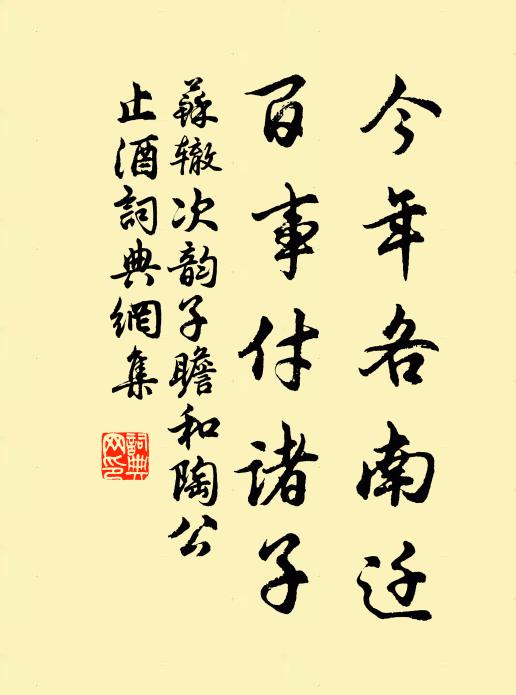 今年各南迁
百事付诸子
蘇辙次韵子瞻和陶公
止酒詞典網集
詞典网印